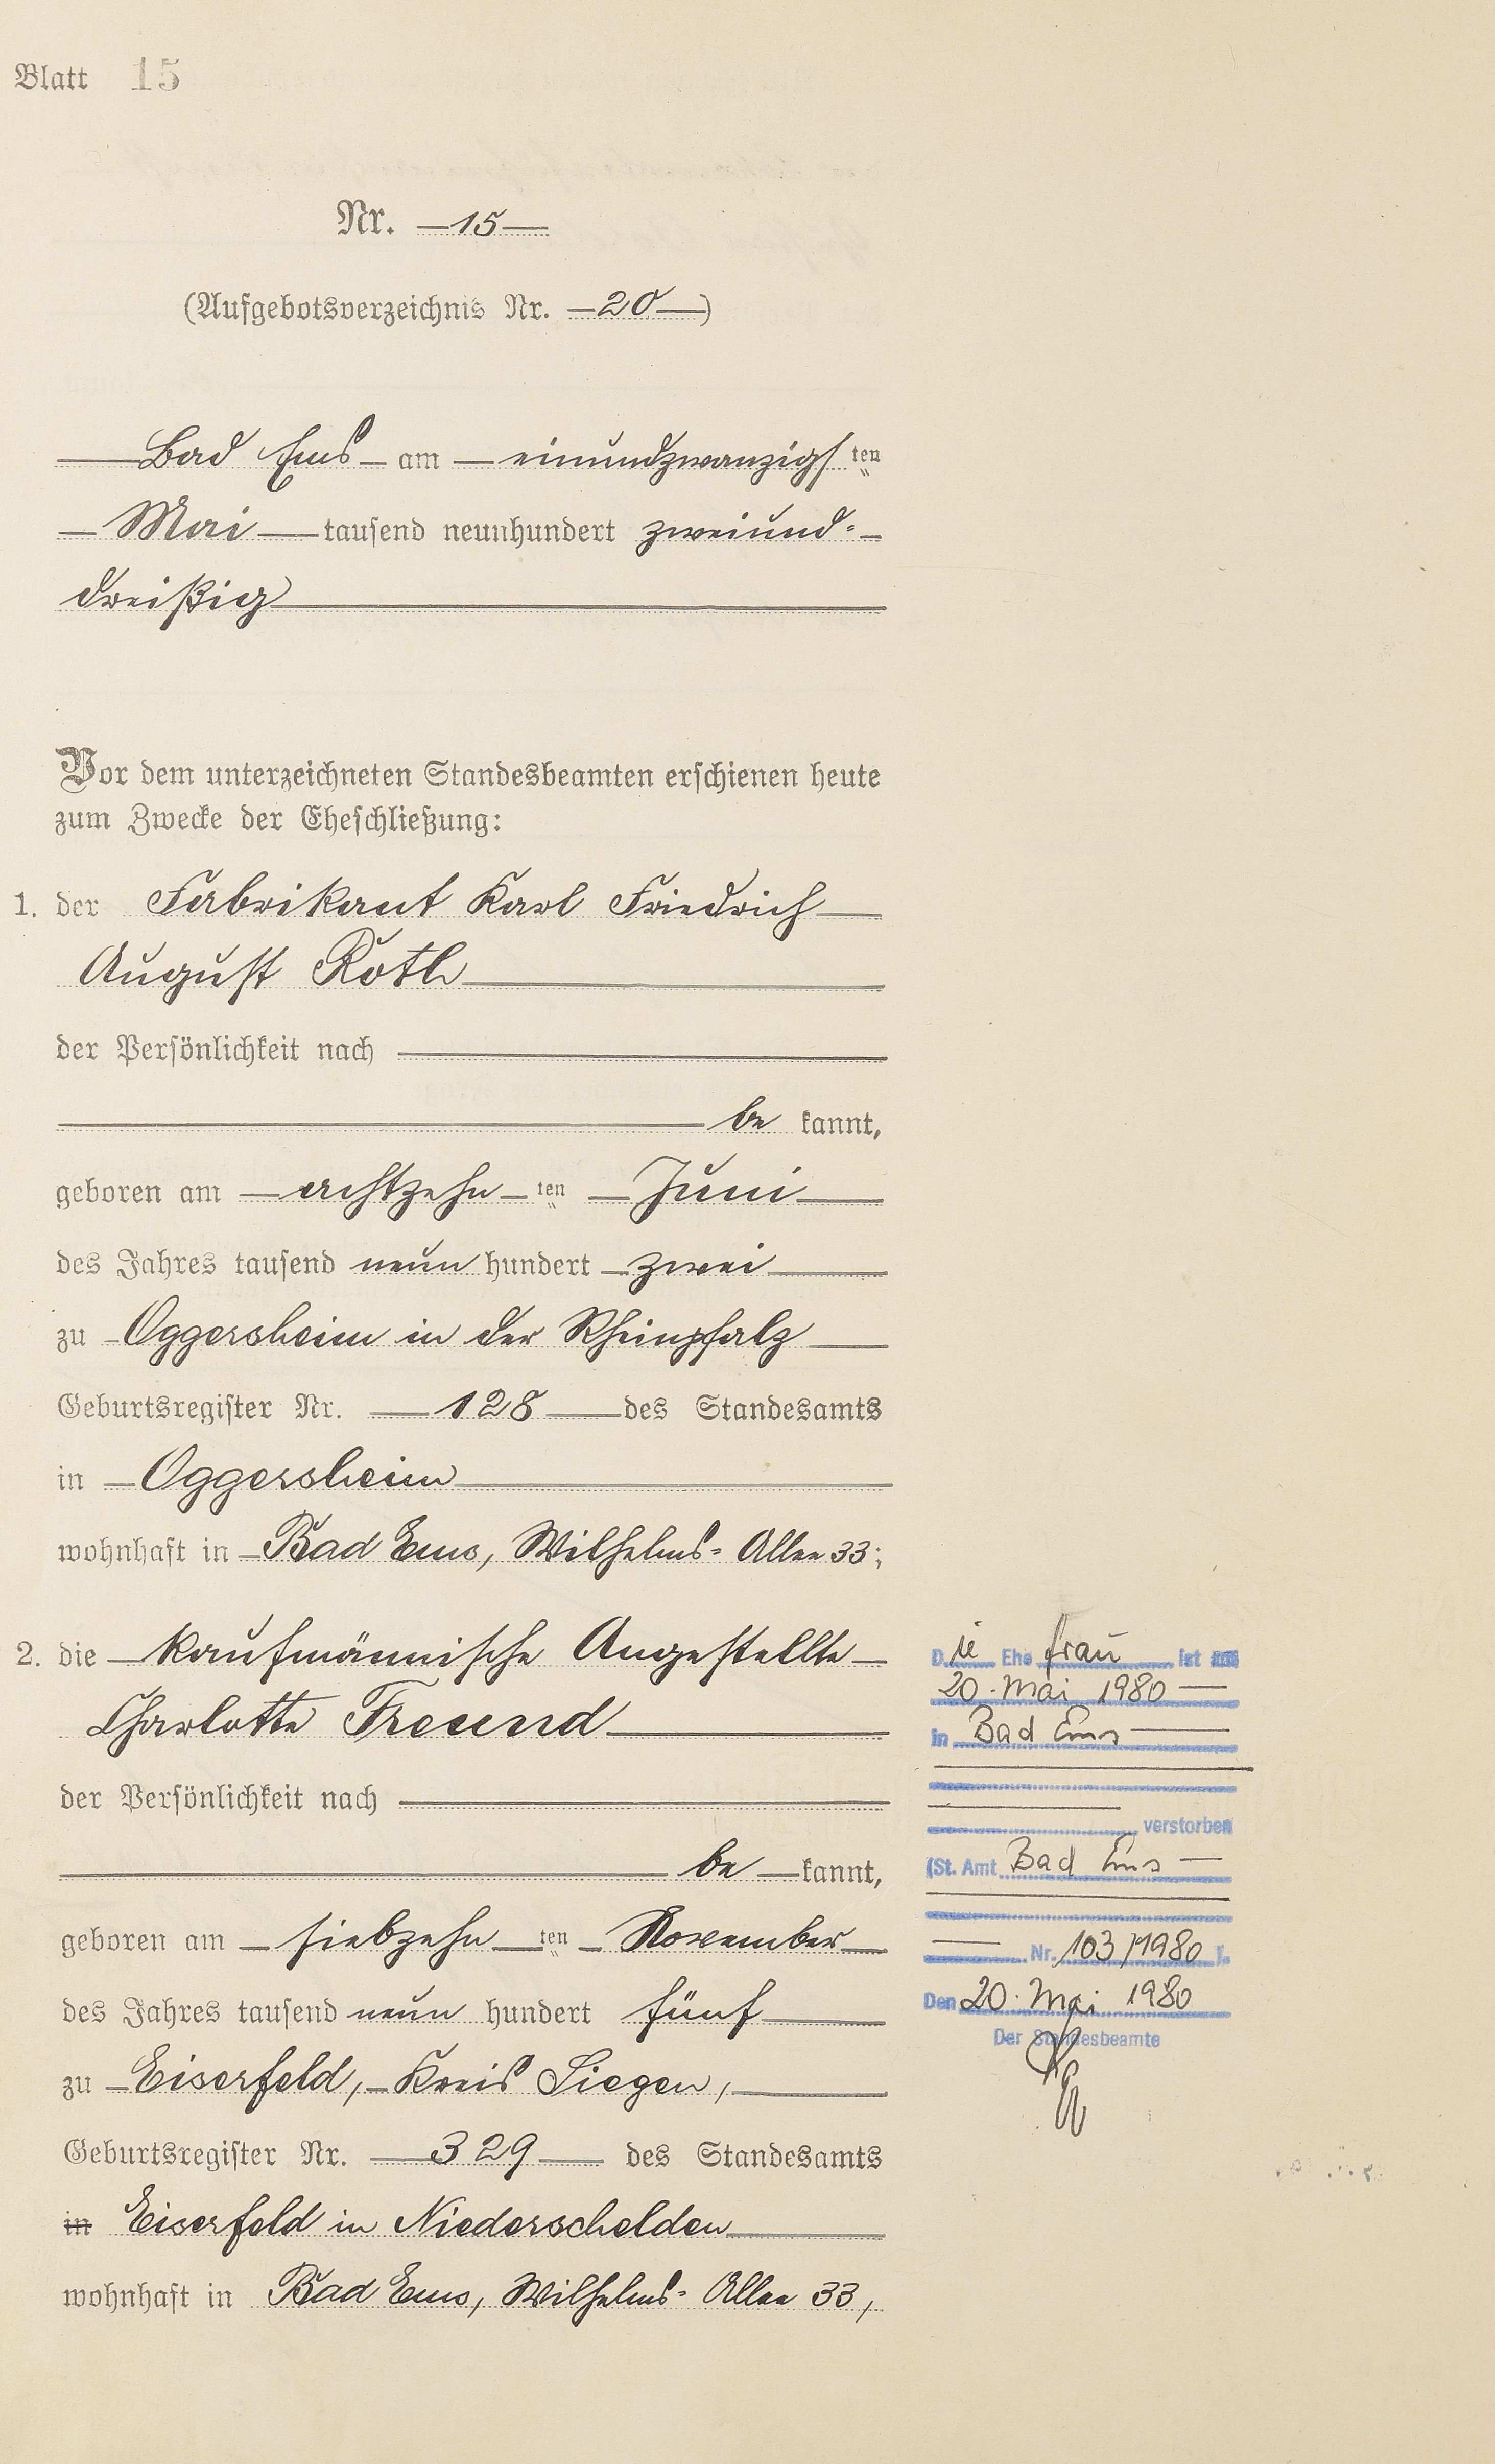 Blatt 15
Nr. —15—
(Aufgebotsverzeichnis Nr. —20—)
Bad Ems am einundzwanzigsten
Mai tausend neunhundert zweiund-
dreißig
Vor dem unterzeichneten Standesbeamten erschienen heute
zum Zwecke der Eheschließung:
1. der Fabrikant Karl Friedrich
August Roth
der Persönlichkeit nach
be kannt,
geboren am achtzehn ten Juni
des Jahres tausend neun hundert zwei
zu Oggersheim in der Rheinpfalz
Geburtsregister Nr. 128 des Standesamts
in Oggersheim
wohnhaft in Bad Ems, Wilhelms- Allee 33;
2. die kaufmännische Angestellte
Charlotte Freund
der Persönlichkeit nach
be kannt,
geboren am siebzehn ten November
des Jahres tausend neun hundert fünf
zu Eiserfeld, Kreis Siegen,
Geburtsregister Nr. 329 des Standesamts
in Eiserfeld in Niederschelden
wohnhaft in Bad Ems, Wilhelms- Allee 33,
Die Ehe frau ist am
20. Mai 1980
in Bad Ems
verstorben
(St. Amt Bad Ems
Nr. 103/1980 ).
Den 20. Mai 1980
Der Standesbeamte